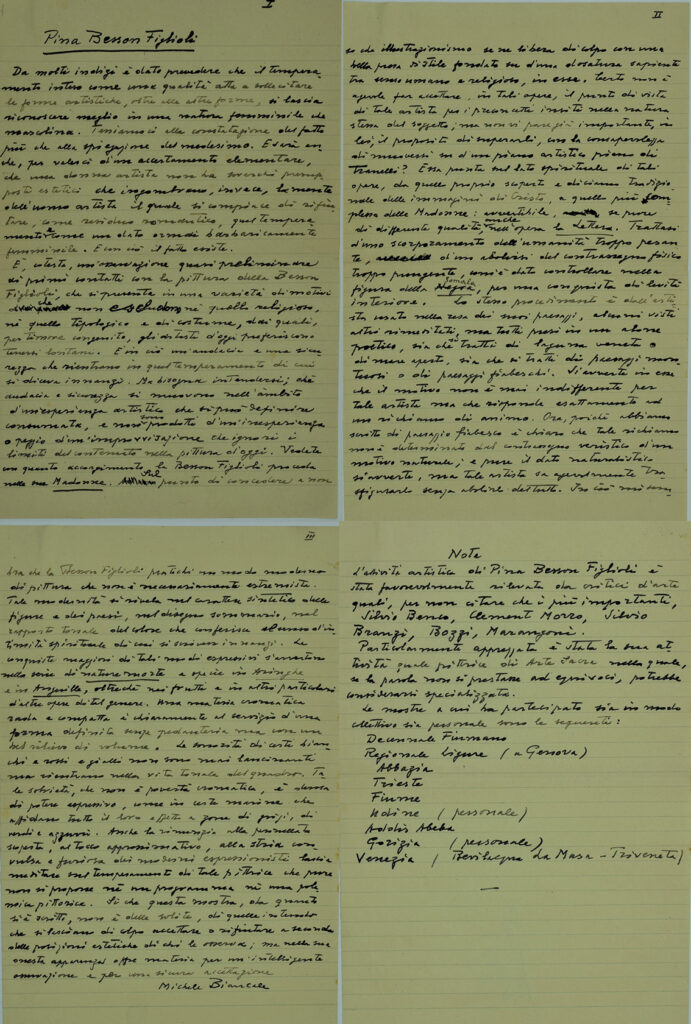 I
Pina Besson Figlioli
Da molte indizi è dato prevedere che il tempera
mento inteso come una qualità atta a sollecitare
le forme artistiche, oltre alle altre forme, si lascia
riconoscere meglio in una natura femminile che
mascolina. Teniamoci alla constatazione del fatto
più che alla spiegazione del medesimo. E sarà an
che, per valerci d'un accertamento elementare,
che una donna artista non ha soverchi presup
posti estetici che ingombrano, invece, la mente
dell'uomo artista il quale si compiace di rifiu
tare, come residuo romantico, quel tempera
mento come un dato ormai barbaricamente
femminile. E con ciò il fatto esiste.
E, cotesta, un'osservazione quasi preliminare
di primi contatti con la pittura della Besson
Figlioli, che si presenta in una varietà di motivi
che non escludono nè quello religioso,
nè quello tipologico e di costume, dai quali,
per timore congenito, gli artisti d'oggi preferiscono
tenersi lontani. E in ciò un'audacia e una sicu
rezza che rientrano in quel temperamento di cui
si diceva innanzi. Ma bisogna intendersi; chè
audacia e sicurezza si muovono nell'ambito
d'un'esperienza artistica che si può definire
consumata, e non prodotti d'un'inesperienza
o peggio d'un'improvvisazione che ignori i
limiti del contenuto nella pittura d'oggi. Vedete
con quanto accorgimento la Besson Figlioli proceda
nelle sue Madonne. Sul punto di concedere a non
II
so che illustrazionismo se ne libera di colpo con una
bella presa di stile fondato su d'una dosatura sapiente
tra senso umano e religioso, in esse. Certo non è
agevole far accettare, in tali opere, il punto di vista
di tale artista per i preconcetti insiti nella natura
stessa del soggetto; ma non vi paregià importante, in
lei, il proposito di superarli, con la consapevolezza
di muoversi su d'un piano artistico pieno di
tranelli? Essa punta sul lato spirituale di tali
opere, da quelle proprio scoperte e diciamo tradizio
nale delle immagini di Cristo, a quelle più com
plesse delle Madonne: avvertibile, se pure
di differente qualità anche nell'opera la Lettera. Trattasi
d'uno scorporamento dell'umanità troppo pesan
te, d'un abolirsi del contrassegno fisico
troppo pungente, com'è dato controllare nella
figura della Malata, per una conquista di levità
interiore. Lo stesso procedimento è dall'arti
sta usato nella resa dei suoi paesaggi, alcuni visti
altri rimeditati, ma tutti presi in un alone
poetico, sia che tratti di laguna veneta o
di mare aperto, sia che si tratti di paesaggi mon
tuosi o di paesaggi fiabeschi. Si avverte in esse
che il motivo non è mai indifferente per
tale artista ma che risponde esattamente ad
un richiamo di animo. Ora, poichè abbiamo
scritto di paesaggio fiabesco è chiaro che tale richiamo
non è determinato dal contrassegno veristico d'un
motivo naturale; e pure il dato naturalistico
s'avverte, ma tale artista sa agevolmente tra
sfigurarlo senza abolirlo del tutto. In ciò mi sem
III
bra che la Besson Figlioli pratichi un modo moderno
di pittura che non è necessariamente estremista.
Tale modernità si rivela nel carattere sintetico delle
figure e dei paesi, nel disegno sommario, nel
rapporto tonale del colore che conferisce il senso d'in
timità spirituale di cui si scriveva innanzi. Le
conquiste maggiori di tali modi espressivi s'avverton
nella serie di nature morte e specie in Aringhe
e in Anguille, oltrechè nei frutti e in altri particolari
d'altre opere di tal genere. Una materia cromatica
rada e compatta è chiaramente al servizio d'una
forma definita senza pedanteria ma con un
bel rilievo di volume. Le sonorità di certi bian
chi o rossi e gialli non sono mai lancinanti
ma rientrano nella vita tonale del quadro. Ta
le sobrietà, che non è povertà cromatica, è densa
di potere espressivo, come in certe marine che
affidano tutto il loro effetto a zone di grigi, di
verdi e azzurri. Anche la rinunzia alla pennellata
saputa, al tocco approssimativo, alla storia con
vulsa e furiosa dei moderni espressionisti lascia
meditare sul temperamento di tale pittrice che pure
non si propone nè un programma nè una pole
mica pittorica. Sì che questa mostra, da quanto
si è scritto, non è delle solite, di quelle intendo
che si lasciano di colpo accettare o rifiutare a seconda
delle posizioni estetiche di chi le osserva; ma nella sua
onesta apparenza offre materia per un'intelligente
osservazione e per una sicura accettazione
Michele Biancale
Note
L'attività artistica di Pina Besson Figlioli è
stata favorevolmente rilevata da critici d'arte
quali, per non citare che i più importanti,
Silvio Benco, Clement Morro, Silvio
Branzi, Bozzi, Marangoni.
Particolarmente apprezzata è stata la sua at
tività quale pittrice di Arte Sacra nella quale,
se la parola non si prestasse ad equivoci, potrebbe
considerarsi specializzata.
Le mostre a cui ha partecipato sia in modo
collettivo sia personale sono le seguenti:
Decennale Fiumano
Regionale Ligure (a Genova)
Abbazia
Trieste
Fiume
Udine (personale)
Addis Abeba
Gorizia (personale)
Venezia (Bevilacqua La Masa - Triveneta)